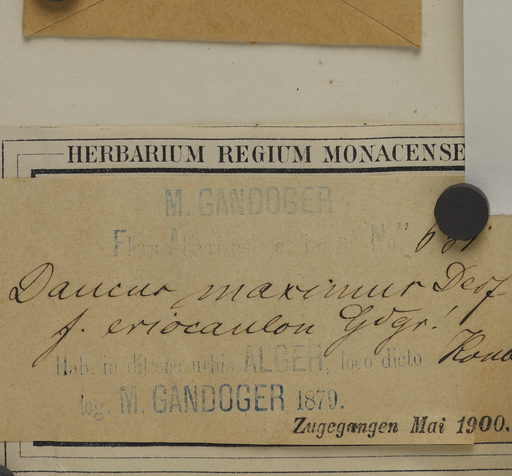 HERBARIUM REGIUM MONACENSE
M. GANDOGER
Flora Algeriensis exsiccata No
Daucus maximus Desf.
f. eriocaulon Gdgr!
Hab. in ditione urbis ALGER, loco dicto Kouba
leg. M. GANDOGER 1879.
Zugegangen Mai 1900.